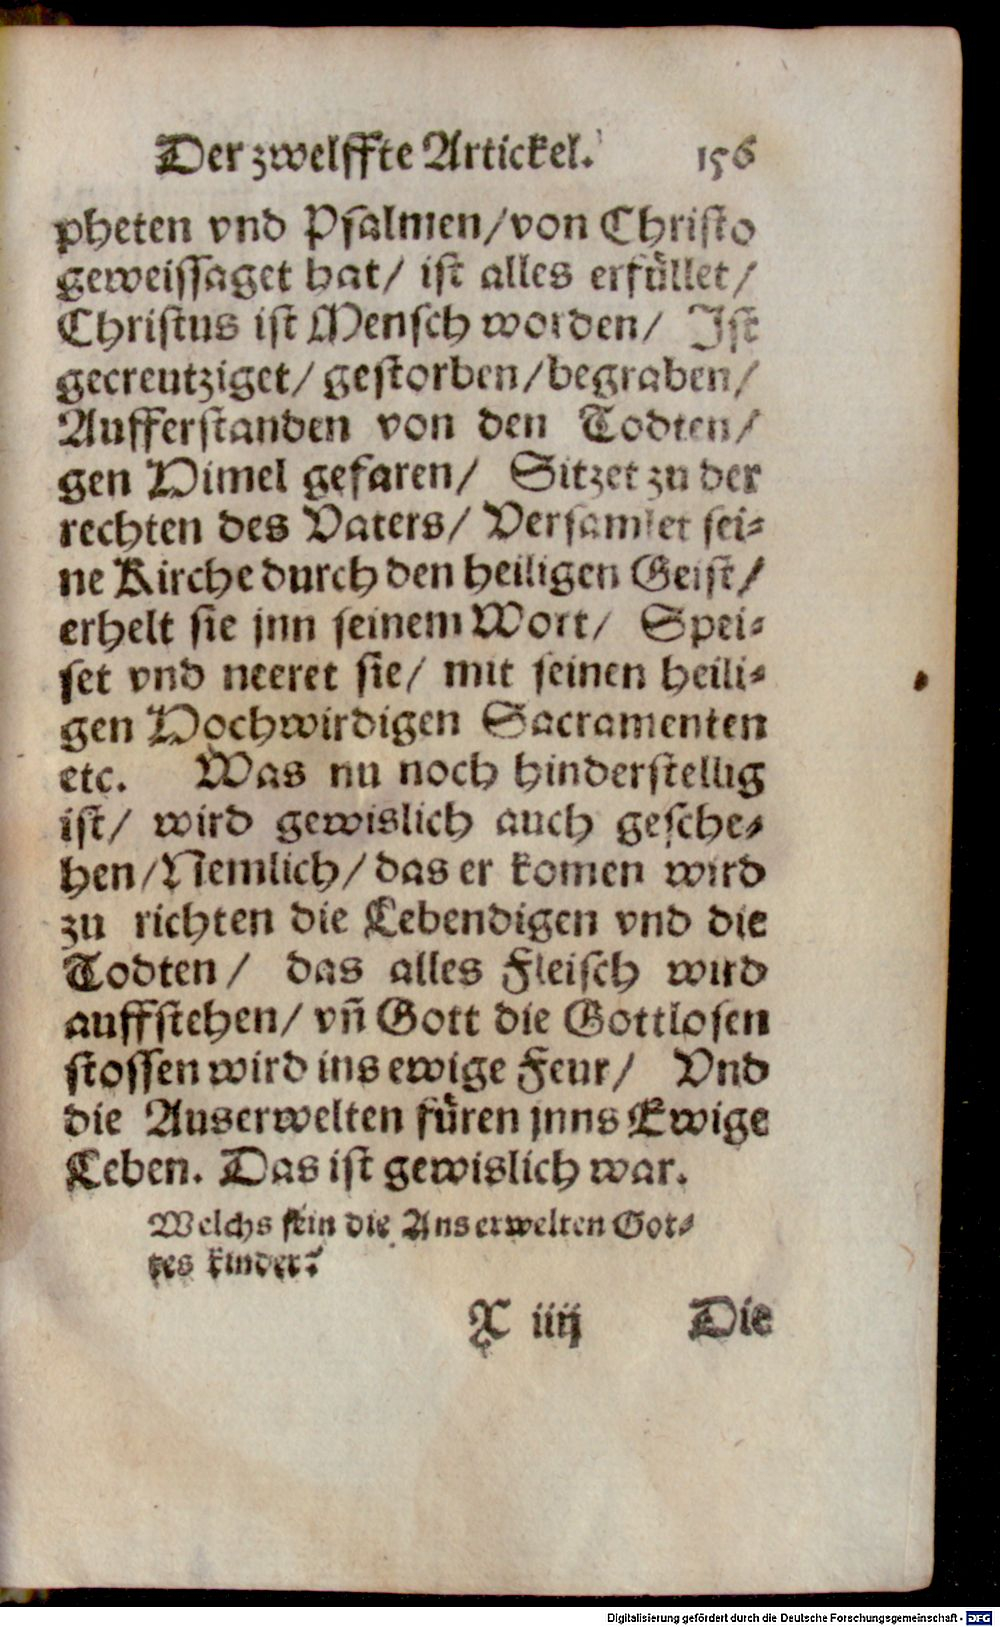 Der zwelffte Artickel. 156
pheten vnd Psalmen/von Christo
geweissaget hat/ ist alles erfüllet/
Christus ist Mensch worden/ Ist
gecreutziget/ gestorben/begraben/
Aufferstanden von den Todten/
gen Himel gefaren/ Sitzet zu der
rechten des Vaters/ Versamlet sei-
ne Kirche durch den heiligen Geist/
erhelt sie jnn seinem Wort/ Spei-
set vnd neeret sie/ mit seinen heili-
gen Hochwirdigen Sacramenten
etc. Was nu noch hinderstellig
ist/ wird gewislich auch gesche-
hen/Nemlich/ das er komen wird
zu richten die Lebendigen vnd die
Todten/ das alles Fleisch wird
auffstehen/ vñ Gott die Gottlosen
stossen wird ins ewige Feur/ Vnd
die Auserwelten füren jnns Ewige
Leben. Das ist gewislich war.
Welchs sein die Auserwelten Got-
tes kinder?
X iiij Die
Digitalisierung gefördert durch die Deutsche Forschungsgemeinschaft - DFG